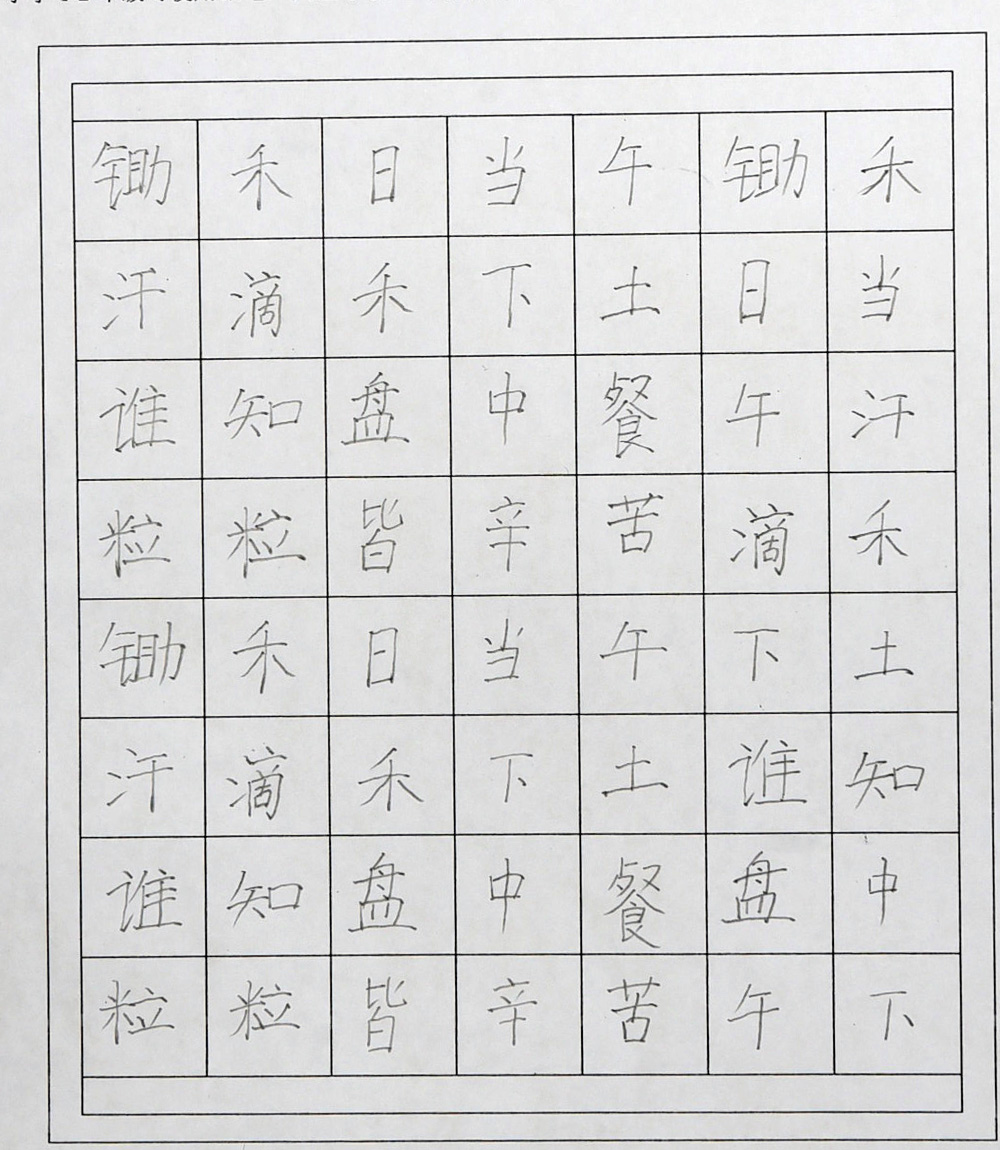 锄禾日当午锄禾
汗滴禾下土日当
谁知盘中餐午汗
粒粒皆辛苦滴禾
锄禾日当午下土
汗滴禾下土谁知
谁知盘中餐盘中
粒粒皆辛苦午下